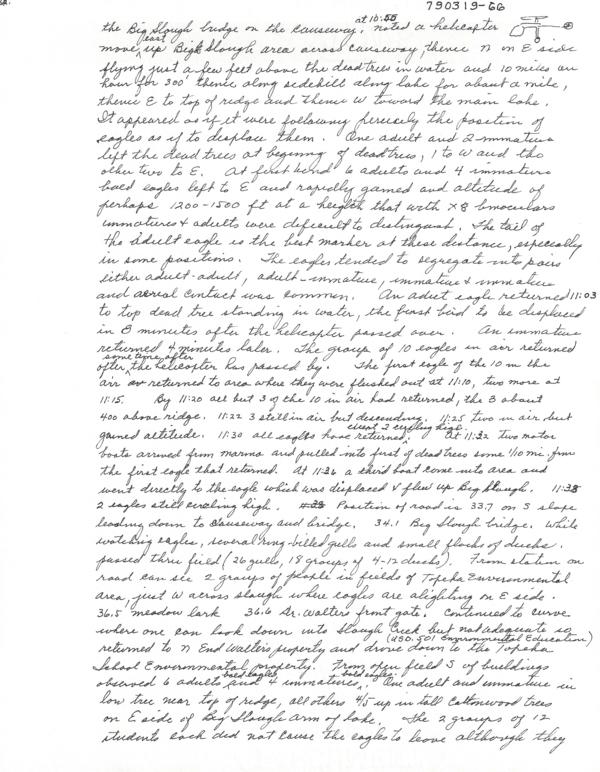 790319-66
at 10:50
the Big Slough bridge on the causeway, noted a helicopter
east
move up Big Slough area across causeway, thence N on E side
flying just a few feet above the dead trees in water and 10 miles an
hour for 300' thence along sidehill along lake for about a mile,
thence E to top of ridge and thence W toward the main lake.
It appeared as if it were following precisely the position of
eagles as if to displace them. One adult and 2 immature
left the dead trees at beginning of dead trees, 1 to W and the
other two to E. At first bend 6 adults and 4 immature
bald eagles left to E and rapidly gained and altitude of
perhaps 1200-1500 ft at a heighth that with X8 binoculars
immatures & adults were difficult to distinguish. The tail of
the adult eagle is the best marker at these distance, especially
in some positions. The eagles tended to segregate into pairs
either adult-adult, adult-immature, immature & immature
and aerial contact was common. An adult eagle returned 11:03
to top dead tree standing in water, the first bird to be displaced
in 8 minutes after the helicopter passed over. An immature
returned 4 minutes later. The group of 10 eagles in air returned
some time after
after the helicopter has passed by. The first eagle of the 10 in the
air returned to area where they were flushed out at 11:10, two more at
11:15. By 11:20 all but 3 of the 10 in air had returned, the 3 about
400 above ridge. 11:22 3 still in air but descending. 11:25 two in air but
except 2 circling high
gained altitude. 11:30 all eagles have returned. At 11:32 two motor
boats arrived from marina and pulled into first of dead trees some 1/10 mi. from
the first eagle that returned. At 11:36 a third boat come into area and
went directly to the eagle which was displaced & flew up Big Slough. 11:38
2 eagles still circling high. Position of road is 33.7 on S slope
leading down to causeway and bridge. 34.1 Big Slough bridge. While
watching eagles, several ring-billed gulls and small flocks of ducks
passed thru field (26 gulls, 18 groups of 4-12 ducks). From station on
road can see 2 groups of people in fields of Topeka Environmental
area, just W across slough where eagles are alighting on E side.
36.5 meadow lark 36.6 Dr. Walters front gate. Continued to curve
where one can look down into Slough Creek but not adequate so
(USD. 501 Environmental Education)
returned to N End Walters property and drove down to the Topeka
School Environmental property. From open field S of buildings
bald eagles bald eagles
observed 6 adults and 4 immatures. One adult and immature in
low tree near top of ridge, all others 4/5 up in tall Cottonwood trees
on E side of Big Slough arm of lake. The 2 groups of 12
students each did not cause the eagles to leave although they